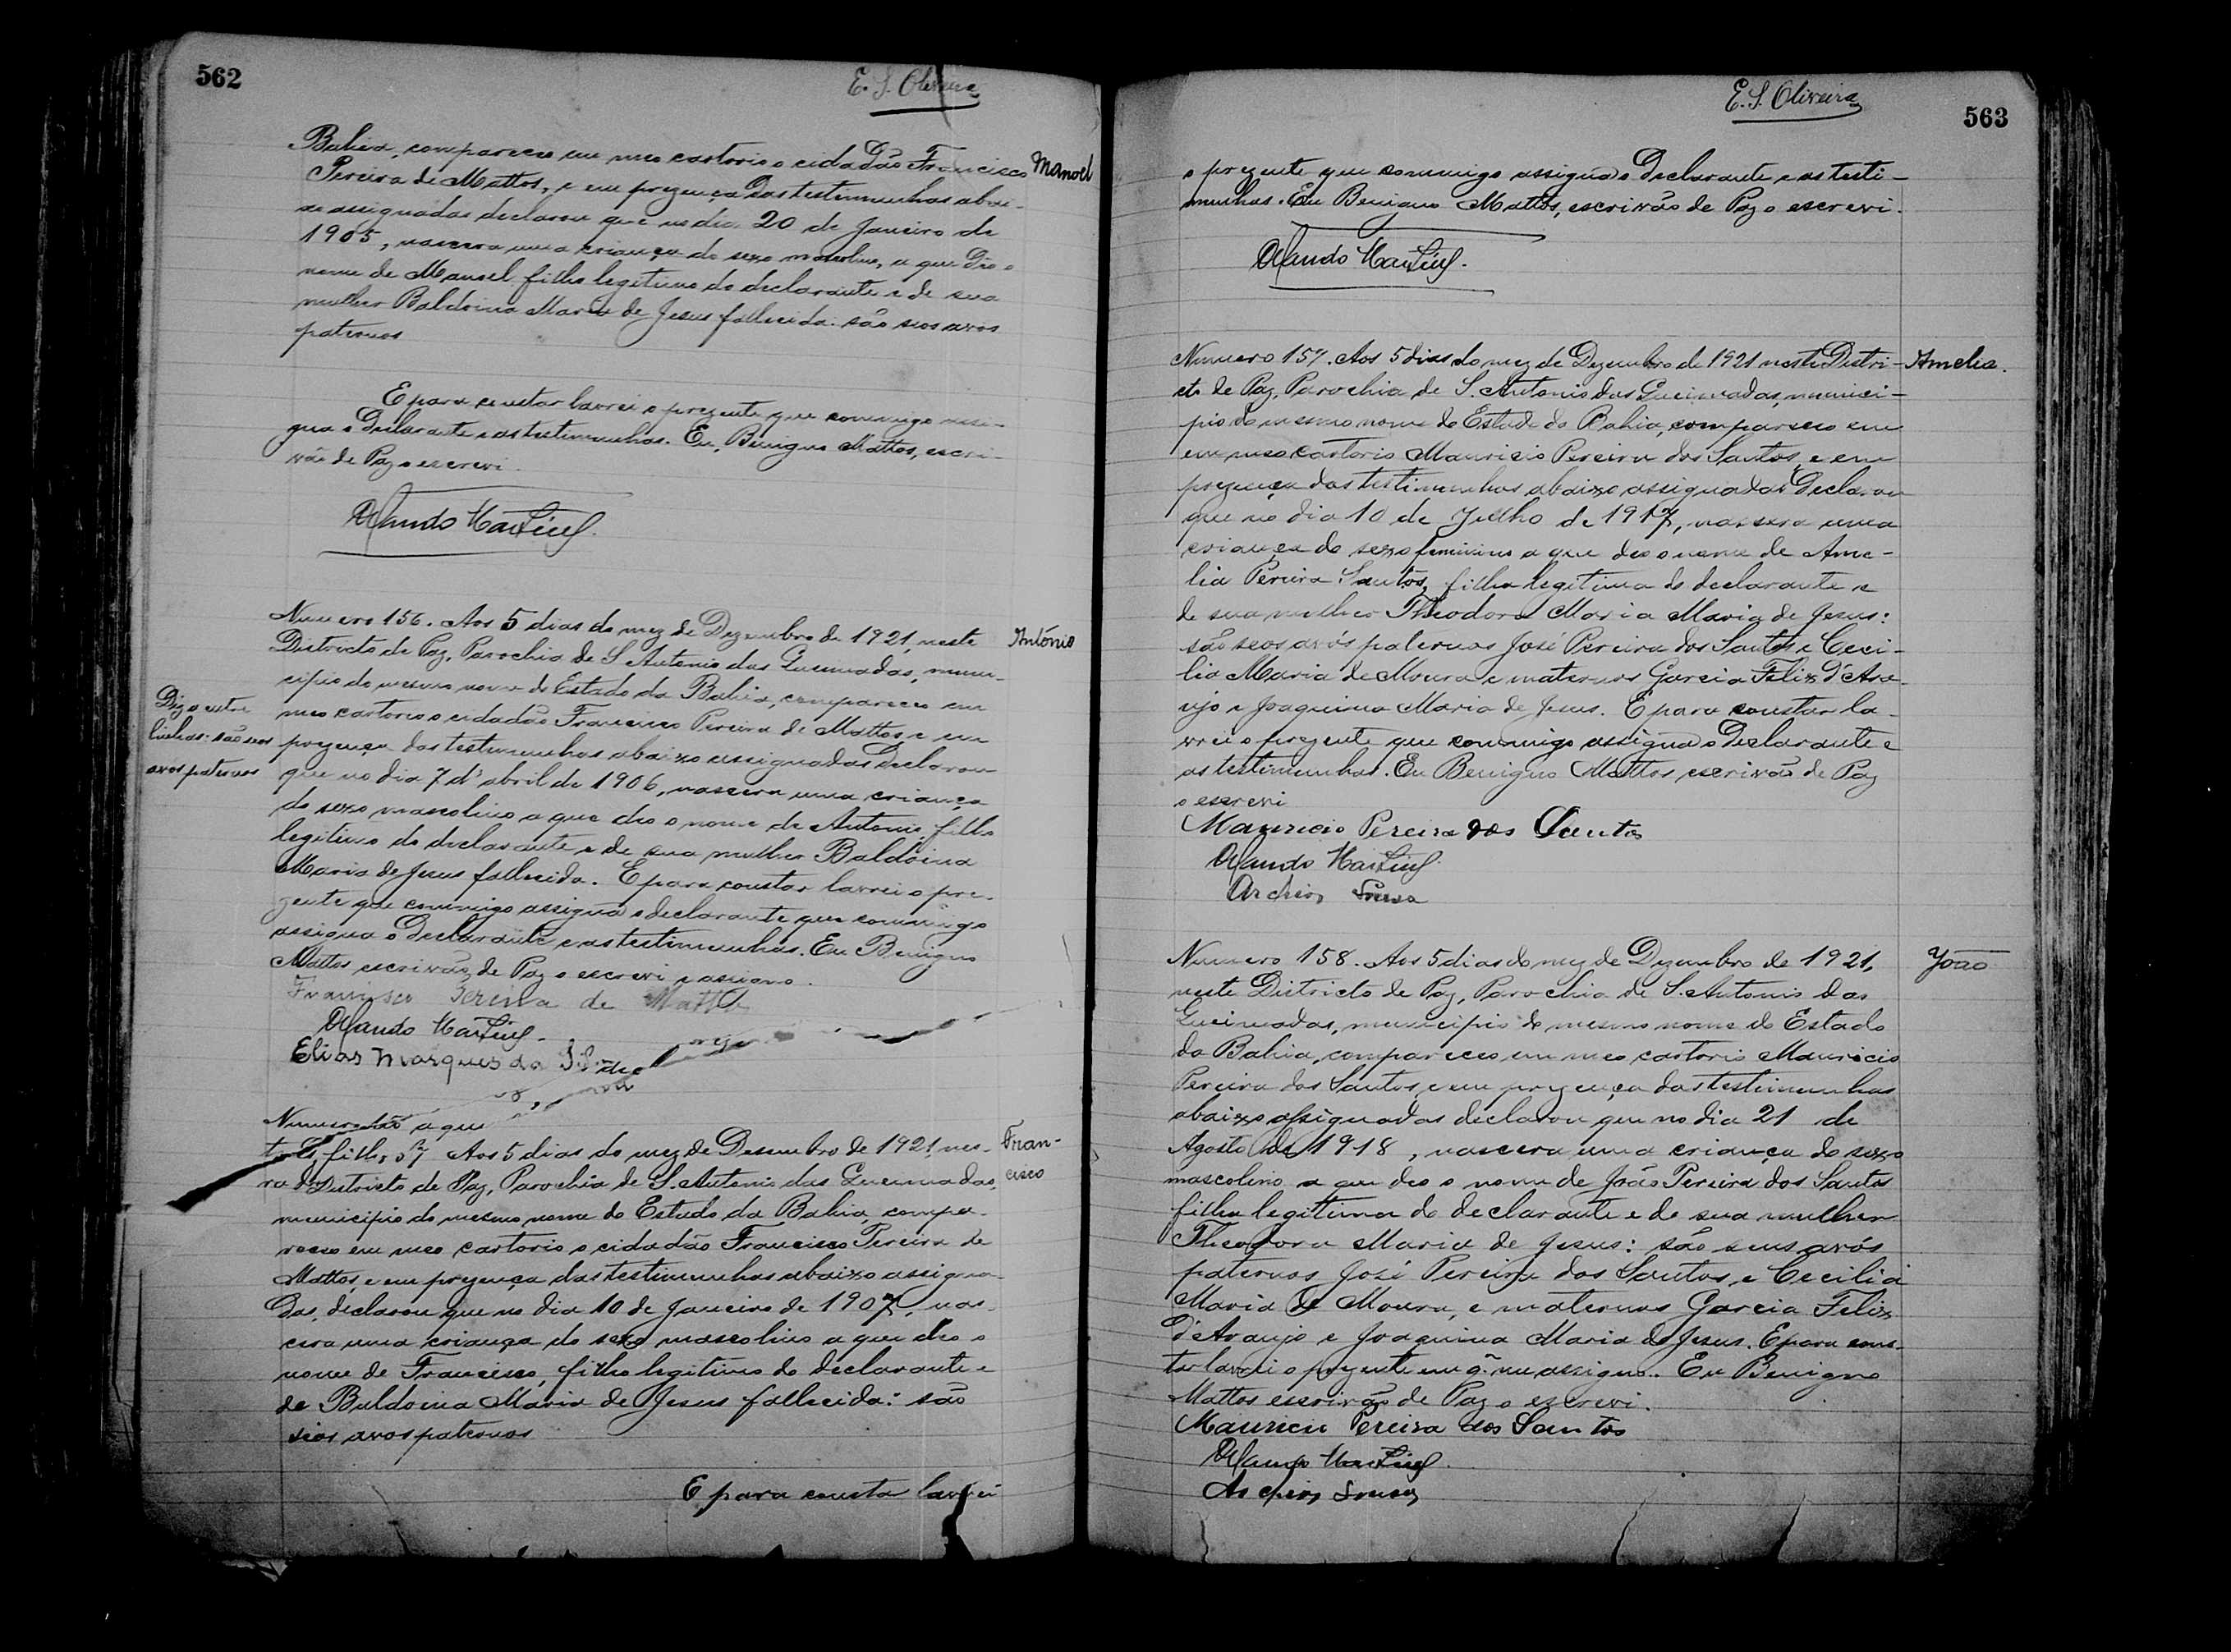 562
E. S. Oliveira
Bahia, compareceu em meo cartorio o cidadão Francisco
Manoel
Pereira de Mattos, e em prezença das testimunhas abai-
xo assignadas declarou que no dia 20 de Janeiro de
1905, nascera uma criança do sexo masculino, a que deo o
nome de Manoel filho legitimo do declarante e de sua
mulher Baldoina Maria de Jesus fallecida. são seos avós
paternos
E para constar lavrei o prezente que commigo assi-
gna o Declarante e as testimunhas. Eu, Benigno Mattos, escri-
vão de Paz o escrevi.
Numero 156. Aos 5 dias do mez de Dezembro de 1921, neste
Antônio
Districto de Paz, Parochia de S. Antonio das Queimadas, muni-
cipio do mesmo nome do Estado da Bahia, compareceu em
meo cartorio o cidadão Francisco Pereira de Mattos e em
Digo entre
linhas: são seos
avos paternos
prezença das testimunhas abaixo assignadas Declarou
que no dia 7 d'abril de 1906, nascera uma criança
do sexo mascolino a que deo o nome de Antonio, filho
legitimo do declarante e de sua mulher Baldoina
Maria de Jesus fallecida. E para constar lavrei o pre-
zente que commigo assigna o declarante que commigo
assigna o Declarante e as testimunhas. Eu Benigno
Mattos escrivão de Paz o escrevi e assigno.
Francisco Pereira de Mattos
Elias Marques da
Numero
filho 57 Aos 5 dias do mez de Desembro de 1921, nes-
Fran-
cisco
Districto de Paz, Parochia de S. Antonio das Queimadas,
municipio do mesmo nome do Estado da Bahia, compa-
receo em meo cartorio o cidadão Francisco Pereira de
Mattos, e em prezença das testimunhas abaixo assigna-
das, declarou que no dia 10 de Janeiro de 1907, nas-
cera uma criança do sexo mascolino a que deo o
nome de Francisco, filho legitimo do declarante e
de Baldoina Maria de Jesus fallecida: são
seos avos paternos
E para consta lavrei
E. S. Oliveira
563
o prezente que commigo assigna o Declarante e as testi-
munhas. Eu Benigno Mattos, escrivão de Paz o escrevi.
Numero 157. Aos 5 dias do mez de Dezembro de 1921 neste Distri-
Amelia.
cto de Paz, Parochia de S. Antonio das Queimadas, munici-
pio do mesmo nome do Estado da Bahia, compareceo em
em meo cartorio Mauricio Pereira dos Santos, e em
prezença das testimunhas abaixo assignadas Declarou
que no dia 10 de Julho de 1917, nascera uma
criança do sexo feminino a que deo o nome de Ame-
lia Pereira Santos, filha legitima do declarante e
de sua mulher Theodora Maria Maria de Jesus:
são seos avós paternos José Pereira dos Santos e Ceci-
lia Maria de Moura e maternos Garcia Felix d'Ara-
ujo e Joaquina Maria de Jesus. E para constar la-
vrei o prezente que commigo assigna o Declarante e
as testimunhas. Eu Benigno Mattos escrivão de Paz
o escrevi
Mauricio Pereira dos Santos
Sousa
Numero 158. Aos 5 dias do mez de Dezembro de 1921,
João
neste Districto de Paz, Parochia de S. Antonio das
Queimadas, municipio do mesmo nome do Estado
da Bahia, compareceo em meo cartorio Mauricio
Pereira dos Santos, e em prezença das testimunhas
abaixo assignadas declarou que no dia 21 de
Agosto de 1918, nascera uma criança do sexo
mascolino a que deo o nome de João Pereira dos Santos
filho legitimo do declarante e de sua mulher
Theodora Maria de Jesus: são seus avós
paternos José Pereira dos Santos, e Cecilia
Maria de Moura, e maternos Garcia Felix
d'Araujo e Joaquina Maria de Jesus. E para cons-
tar lavrei o prezente em q. me assigno. Eu Benigno
Mattos escrivão de Paz o escrevi.
Mauricio Pereira dos Santos
Sousa